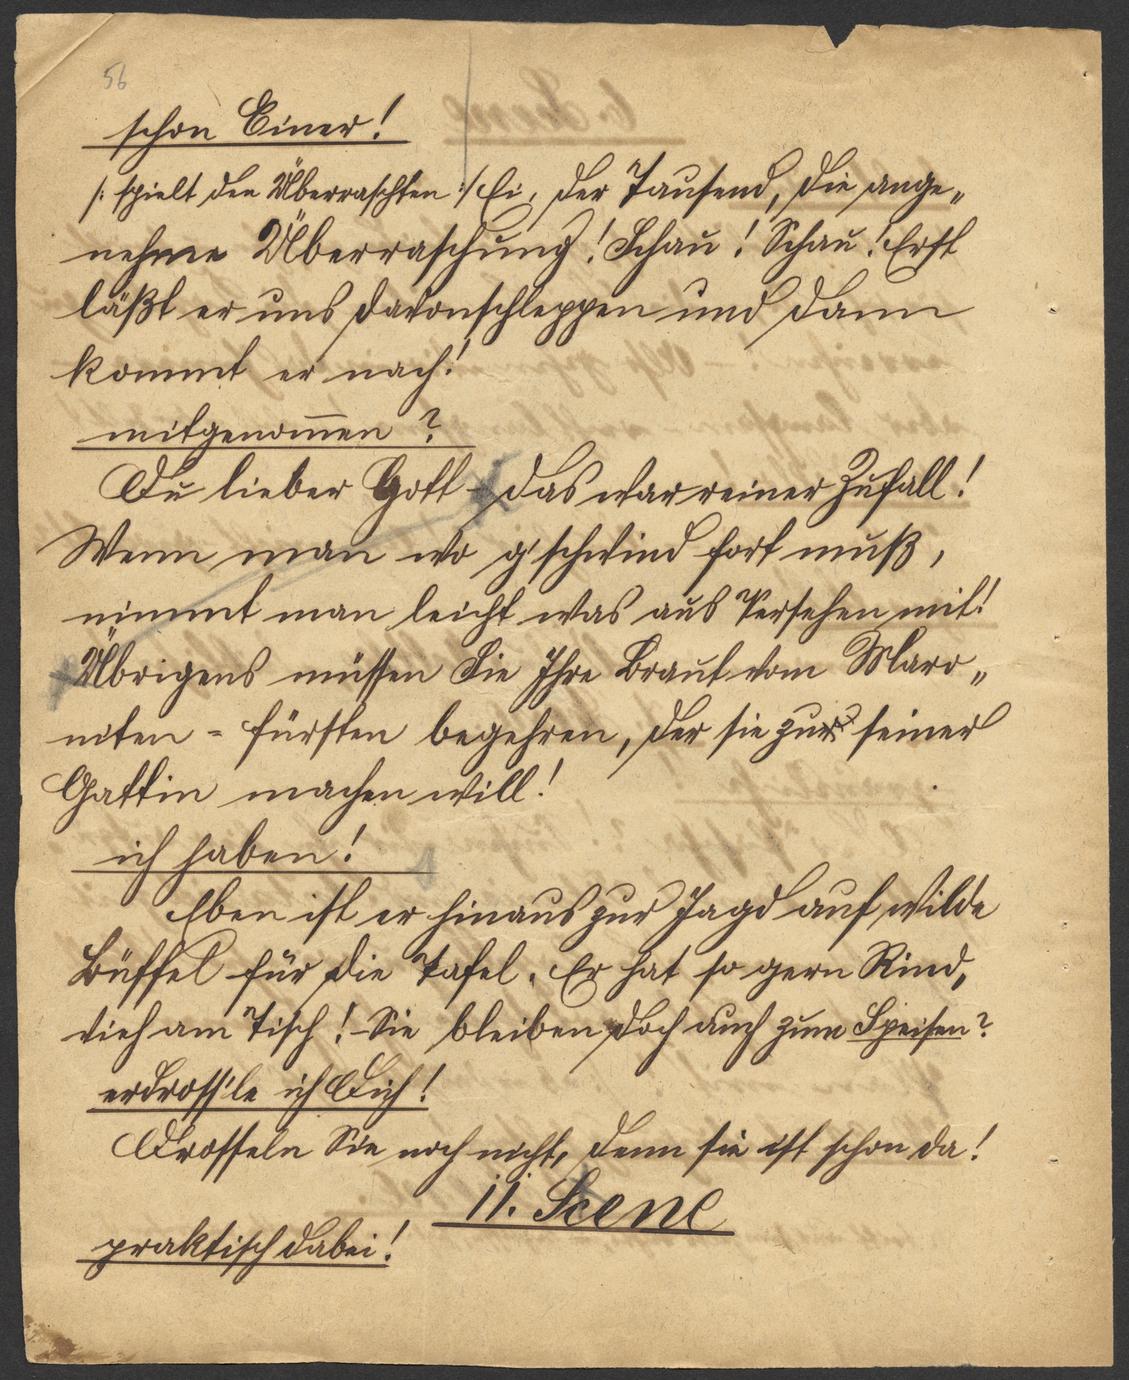 56
schon Einer!
/: spielt den Überraschten :/ Ei, der Tausend, die ange„
nehme Überraschung! Schau! Schau! Erst
läßt er uns davonschleppen und dann
kommt er nach!
mitgenom̅en?
Du lieber Gott - das war reiner Zufall!
Wenn man wo g'schwind fort muß,
nimmt man leicht was aus Versehen mit!
Übrigens müssen Sie Ihre Braut vom Maro„
niten-fürsten begehren, der sie zur seiner
Gattin machen will!
ich haben!
Eben ist er hinaus zur Jagd auf wilde
Büffel für die Tafel. Er hat so gern Rind„
vieh am Tisch! Sie bleiben doch auch zum Speisen?
erdross'le ich Dich!
Drosseln Sie noch nicht, denn sie ist schon da!
11. Scene
praktisch dabei!